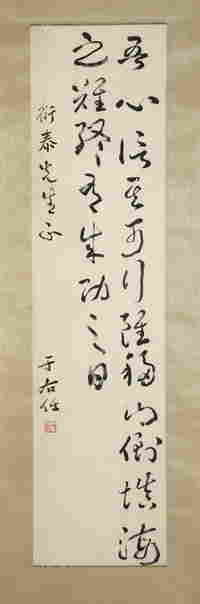 吾心信其可行雖移山倒填海
之難終有成功之日
衍泰先生正
于右任